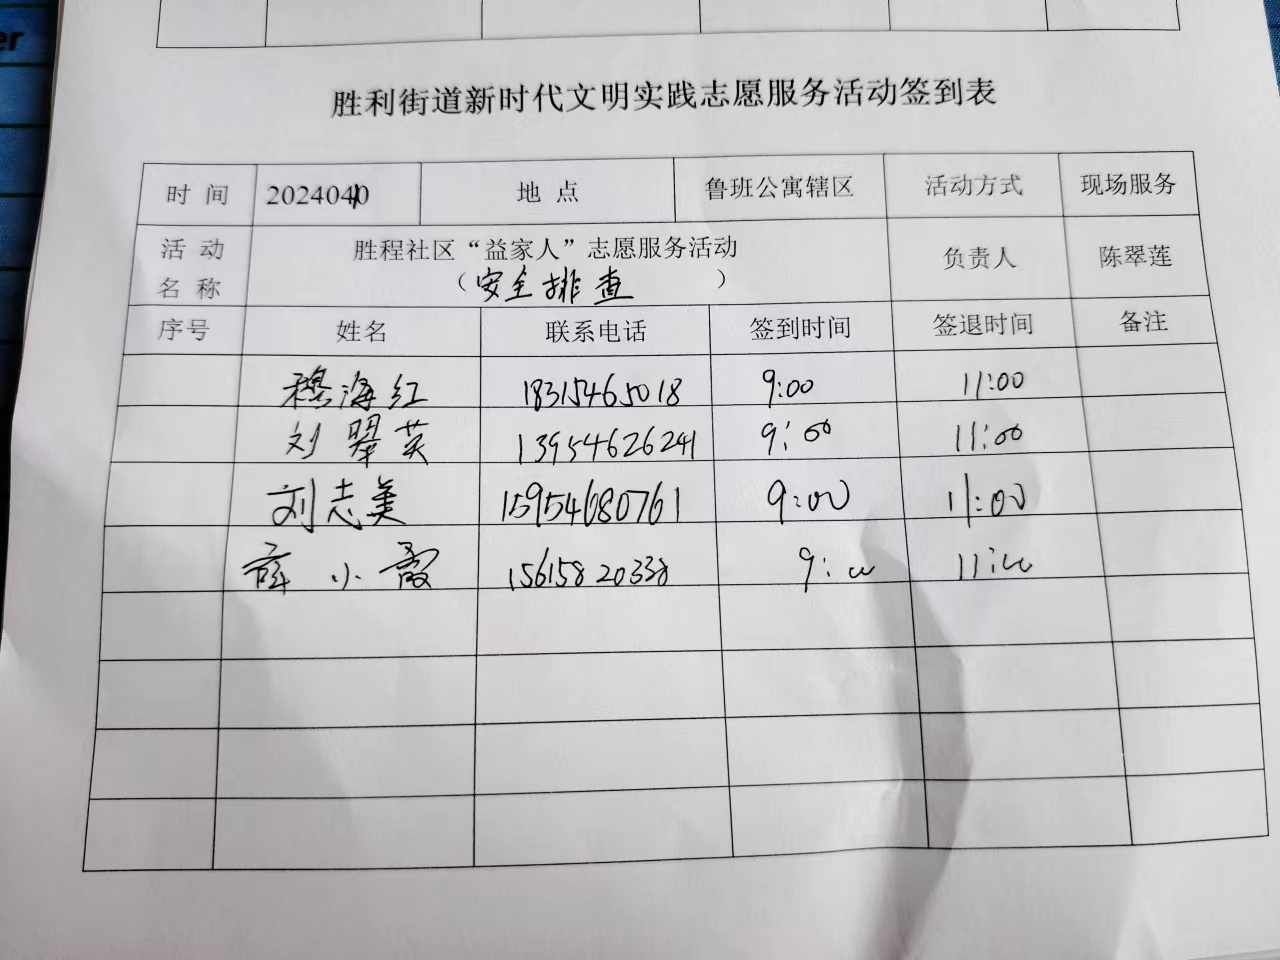 er
胜利街道新时代文明实践志愿服务活动签到表
时 间 地 点 鲁班公寓辖区 活动方式 现场服务
活 动 名 称 胜程社区“益家人”志愿服务活动 负责人 陈翠莲
（安全排查）
序号 姓名 联系电话 签到时间 签退时间 备注
穆海红 18315465018 9:00 11:00
刘翠英 13954626241 9:00 11:00
刘志美 15954680761 9:00 11:00
薛小霞 15615820338 9:00 11:00